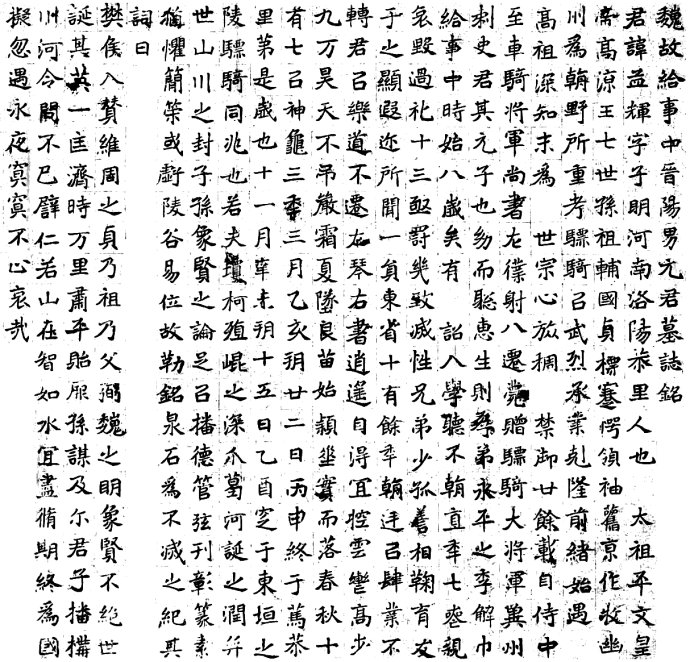 魏故給事中晉陽男元君墓誌銘
君諱益輝字子明河南洛陽旅里人也　太祖平文皇
帝高涼王七世孫祖輔國貞標謇愕領袖舊京作牧幽
川為朝野所重考驃騎召武烈承業剋隆前緒始遇
高祖深知末為　世宗心旅稠　禁御廿餘載自侍中
至車騎將軍尚書左僕射八遷薨贈驃騎大將軍冀州
刺史君其元子也幼而聡惠生則孝弟永平之季解巾
給事中時始八歲矣有　詔入學聽不朝直年七丧親
哀毀過礼十三亟罸幾致滅性兄弟少孤善相鞠育友
于之顯遐迩所聞一負東省十有餘年朝迋已肆業不
轉君召樂道不遷左琴右書逍遙自得冝控雲轡高步
九万昊天不弔嚴霜夏墜良苗始穎垂實而落春秋十
有七召神龜三年三月乙亥朔廿二日丙申終于篤恭
里第是歲也十一月辛未朔十五日乙酉窆于東垣之
陵驃騎同兆也若夫瓊柯殖崐之深爪葛河誕之潤弁
世山川之封子孫象賢之論足召播德管弦刊彰篆素
猶懼簡筞或虧陵谷易位故勒銘泉石為不滅之紀其
詞曰
樊侯入賛維周之貞乃祖乃父弼魏之明象賢不絕世
誕其英一匡濟時万里肅平貽厥孫謀及尓君子播構
川河令問不已礕仁若山在智如水冝盡脩期終為國
擬忽遇永夜寞寞不心哀㢤